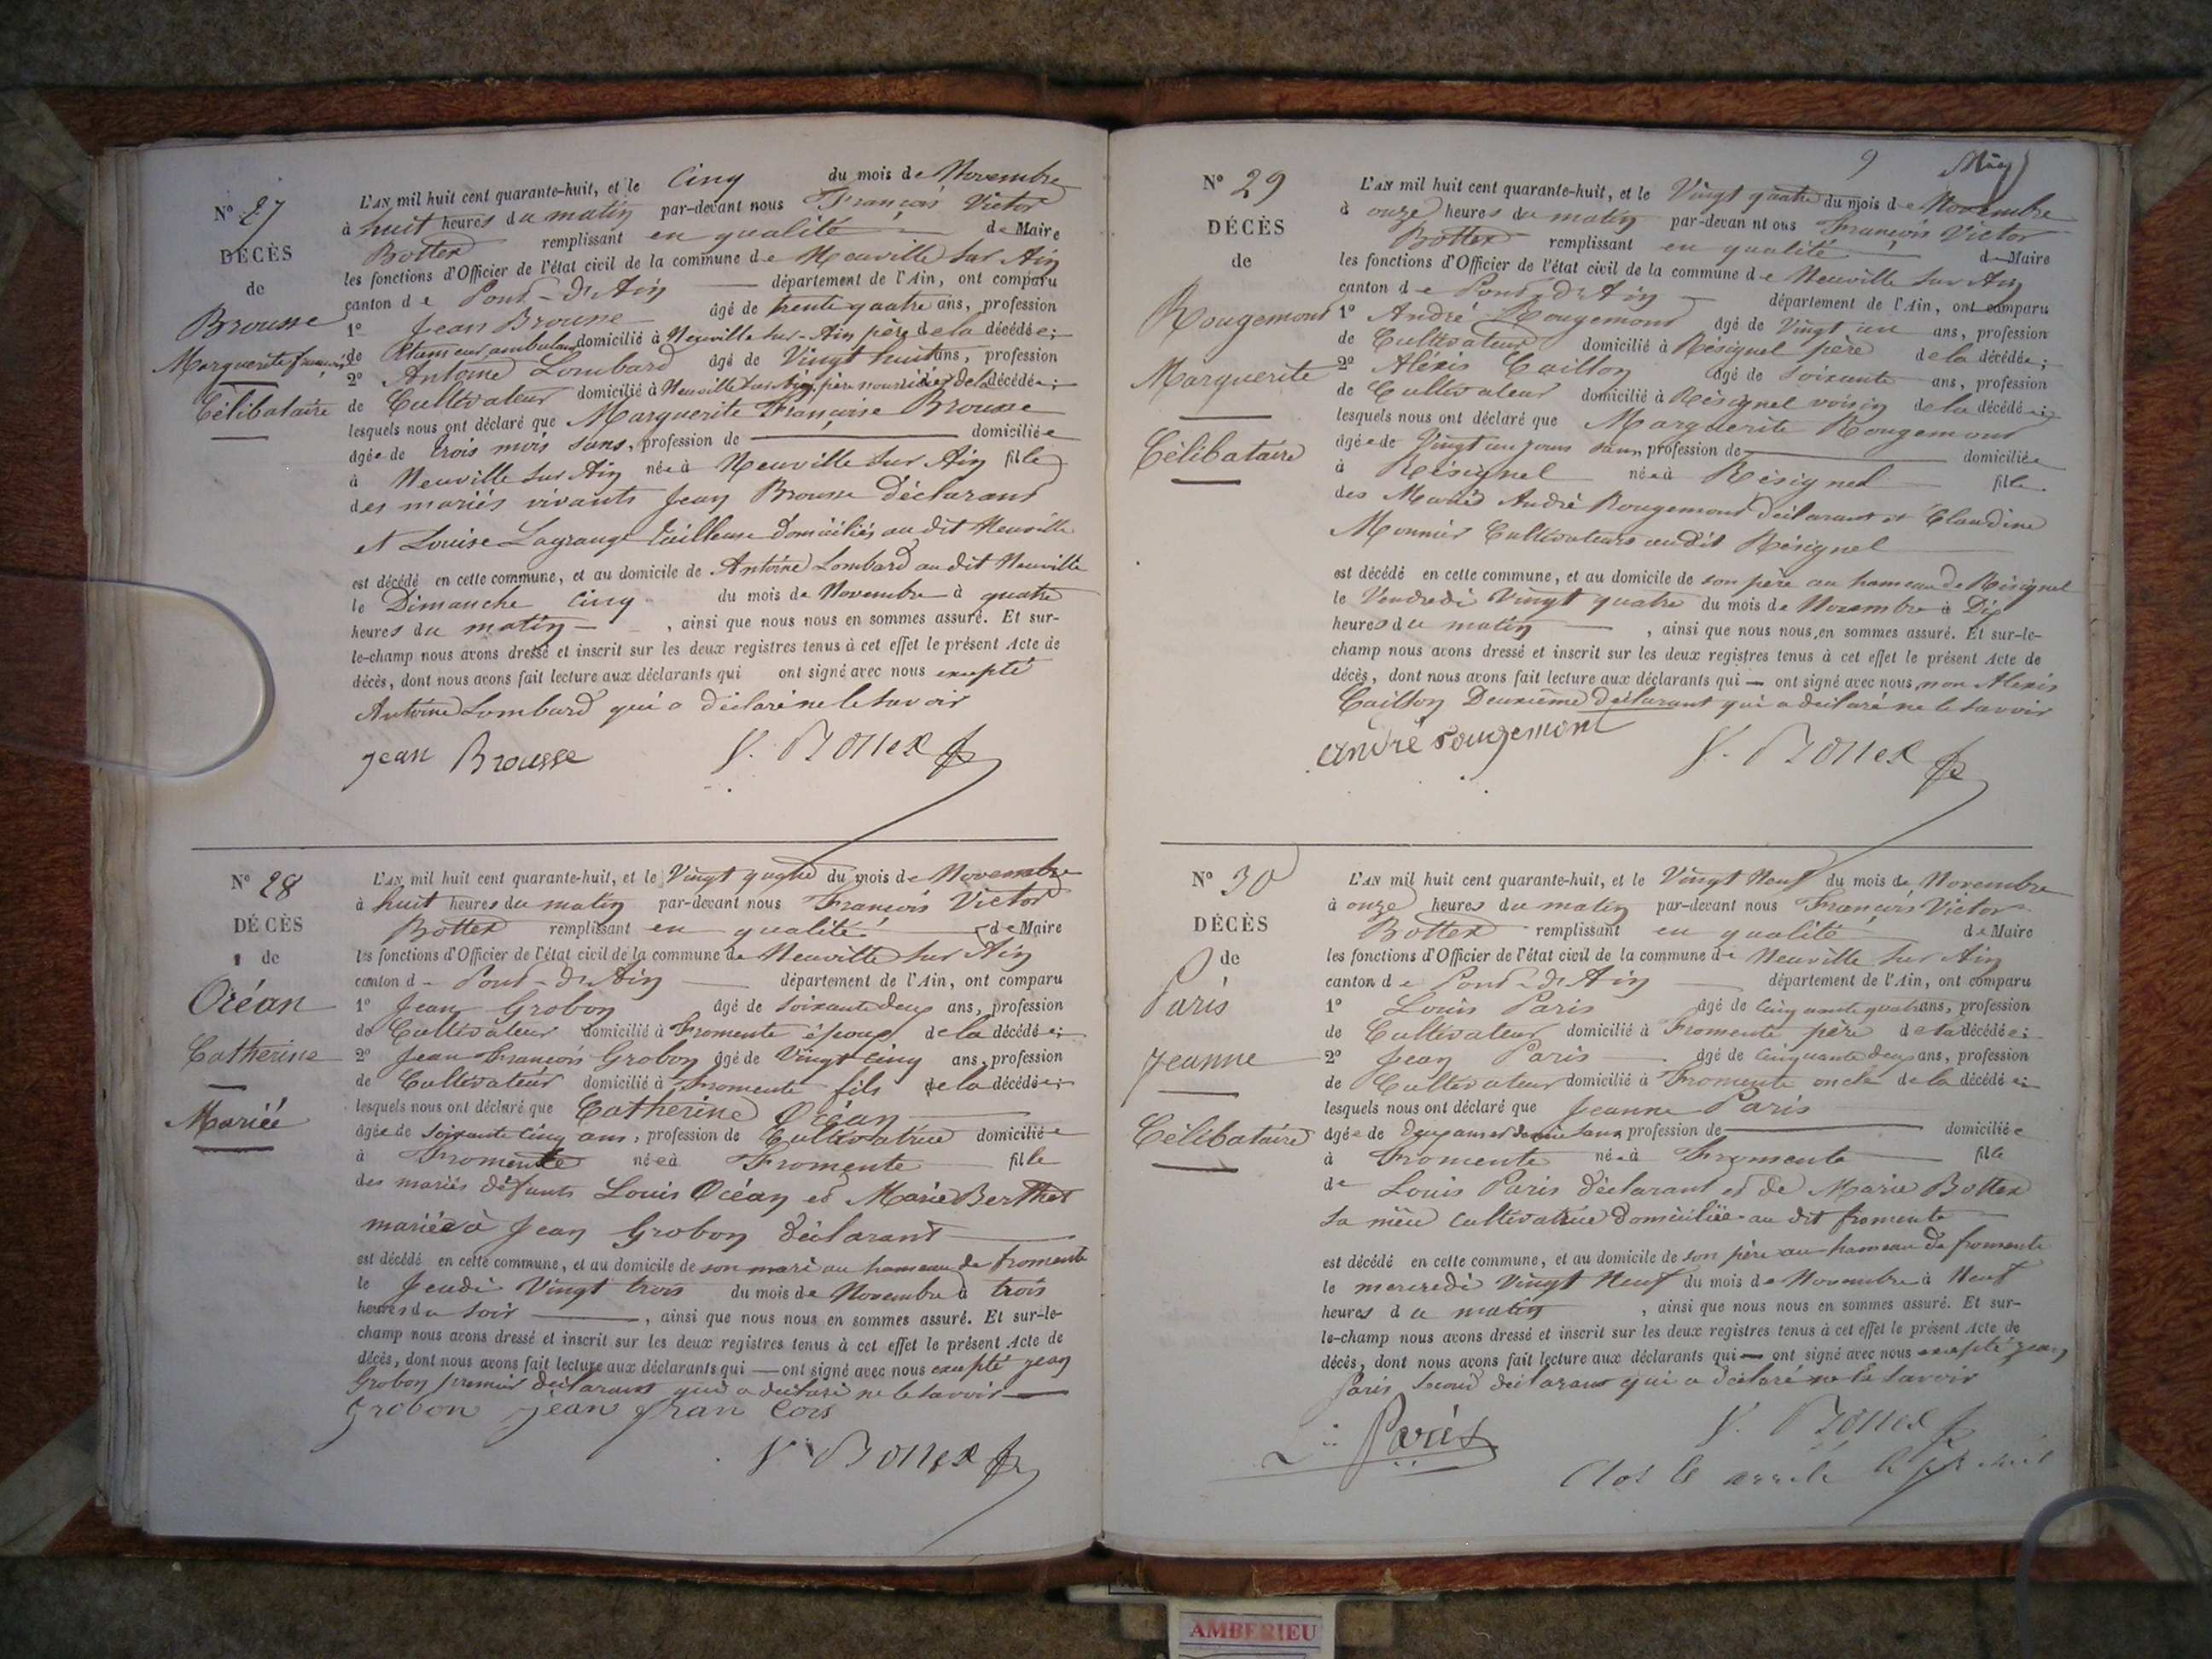 N° 27
DÉCÈS
de
Brousse
Marguerite françoise
Célibataire
L'AN mil huit cent quarante-huit, et le Cinq du mois de Novembre
à huit heures du matin par-devant nous François Victor
Bottex remplissant en qualité de Maire
les fonctions d'Officier de l'état civil de la commune de Neuville sur Ain
canton de Pont-d'Ain département de l'Ain, ont comparu
1° Jean Brousse âgé de trente quatre ans, profession
de Etameur ambulant domicilié à Neuville sur-Ain père de la décédée;
2° Antoine Lombard âgé de Vingt huit ans, profession
de Cultivateur domicilié à Neuville sur Ain, père nourricier de la décédée;
lesquels nous ont déclaré que Marguerite Françoise Brousse
âgée de trois mois sans, profession de domiciliée
à Neuville sur Ain née à Neuville sur Ain fille
des mariés vivants Jean Brousse Déclarant
et Louise Lagrange tailleuse domiciliés au dit Neuville
est décédé en cette commune, et au domicile de Antoine Lombard au dit Neuville
le Dimanche Cinq du mois de Novembre à quatre
heures du matin , ainsi que nous nous en sommes assuré. Et sur-
le-champ nous avons dressé et inscrit sur les deux registres tenus à cet effet le présent Acte de
décès, dont nous avons fait lecture aux déclarants qui ont signé avec nous excepté
Antoine Lombard qui a déclaré ne le savoir
Jean Brousse V. Bottex
N° 28
DÉCÈS
de
Océan
Catherine
Mariée
L'AN mil huit cent quarante-huit, et le Vingt quatre du mois de Novembre
à huit heures du matin par-devant nous François Victor
Bottex remplissant en qualité de Maire
les fonctions d'Officier de l'état civil de la commune de Neuville sur Ain
canton de Pont-d'Ain département de l'Ain, ont comparu
1° Jean Grobon âgé de soixante deux ans, profession
de Cultivateur domicilié à Fromente époux de la décédée;
2° Jean François Grobon âgé de Vingt cinq ans, profession
de Cultivateur domicilié à Fromente fils de la décédée;
lesquels nous ont déclaré que Catherine Océan
âgée de soixante cinq ans, profession de Cultivatrice domiciliée
à Fromente née à Fromente fille
des mariés défunts Louis Océan et Marie Berthet
mariée à Jean Grobon déclarant
est décédé en cette commune, et au domicile de son mari au hameau de fromente
le Jeudi Vingt trois du mois de Novembre à trois
heures du soir , ainsi que nous nous en sommes assuré. Et sur-le-
champ nous avons dressé et inscrit sur les deux registres tenus à cet effet le présent Acte de
décès, dont nous avons fait lecture aux déclarants qui ont signé avec nous excepté jean
Grobon premier déclarant qui a déclaré ne le savoir
Grobon jean fran cois
V. Bottex
9
N° 29
DÉCÈS
de
Rougemont
Marguerite
Célibataire
L'AN mil huit cent quarante-huit, et le Vingt quatre du mois de Novembre
à onze heures du matin par-devan nt ous François Victor
Bottex remplissant en qualité de Maire
les fonctions d'Officier de l'état civil de la commune de Neuville sur Ain
canton de Pont-d'Ain département de l'Ain, ont comparu
1° André Rougemont âgé de Vingt un ans, profession
de Cultivateur domicilié à Résignel père de la décédée;
2° Aléxis Caillon âgé de soixante ans, profession
de Cultivateur domicilié à Résignel voisin de la décédée;
lesquels nous ont déclaré que Marguerite Rougemont
âgée de Vingt un jours sans, profession de domiciliée
à Résignel née à Résignel fille
des Mariés André Rougemont déclarant et Claudine
Monnier Cultivateurs au dit Résignel
est décédé en cette commune, et au domicile de son père au hameau de Résignel
le Vendredi Vingt quatre du mois de Novembre à Dix
heures du matin , ainsi que nous nous en sommes assuré. Et sur-le-
champ nous avons dressé et inscrit sur les deux registres tenus à cet effet le présent Acte de
décès, dont nous avons fait lecture aux déclarants qui ont signé avec nous, non Alexis
Caillon Deuxième déclarant qui a déclaré ne le savoir
andré rougemont V. Bottex
N° 30
DÉCÈS
de
Paris
Jeanne
Célibataire
L'AN mil huit cent quarante-huit, et le Vingt Neuf du mois de Novembre
à onze heures du matin par-devant nous François Victor
Bottex remplissant en qualité de Maire
les fonctions d'Officier de l'état civil de la commune de Neuville sur Ain
canton de Pont-d'Ain département de l'Ain, ont comparu
1° Louis Paris âgé de cinquante quatre ans, profession
de Cultivateur domicilié à Fromente père de la décédée;
2° Jean Paris âgé de cinquante deux ans, profession
de Cultivateur domicilié à Fromente oncle de la décédée;
lesquels nous ont déclaré que Jeanne Paris
âgée de deux ans et demie sans profession de domiciliée
à Fromente née à Fromente fille
de Louis Paris déclarant et de Marie Bottex
sa mère cultivatrice domiciliée au dit fromente
est décédé en cette commune, et au domicile de son père au hameau de fromente
le mercredi Vingt Neuf du mois de Novembre à Neuf
heures du matin , ainsi que nous nous en sommes assuré. Et sur-
le-champ nous avons dressé et inscrit sur les deux registres tenus à cet effet le présent Acte de
décès, dont nous avons fait lecture aux déclarants qui ont signé avec nous excepté jean
Paris second déclarant qui a déclaré ne le savoir
Paris V. Bottex
Clos le
AMBERIEU